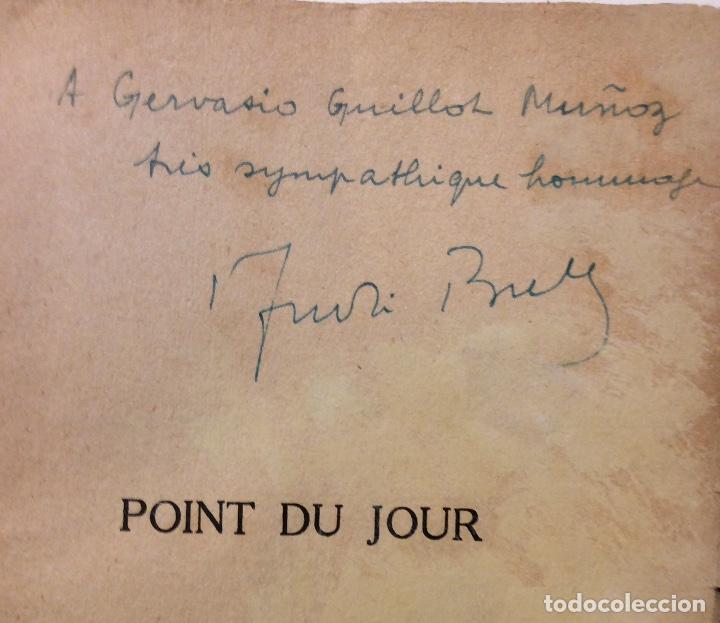 A Gervasio Guillot Muñoz
très sympathique hommage
André Breton
POINT DU JOUR
todocoleccion.net